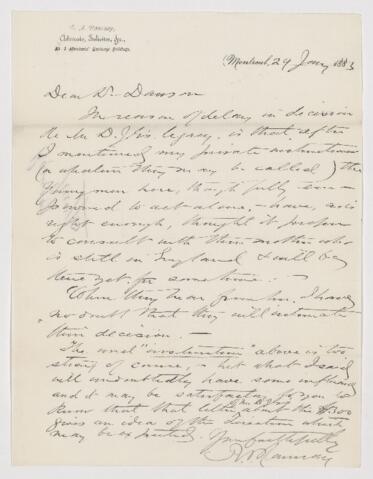 Advocate, Solicitor, &c.,
Merchants' Exchange Buildings.
Montreal, 29 Jany 1883
Dear Dr Dawson
The reason of delay in decision
Re Mr D. J 's legacy, is that after
I mentioned my private instructions
(or whatever they may be called) the
young men here, though fully em-
powered to act alone, - have, as is
right enough, thought it proper
to consult with their mother who
is still in England & will be
there yet for some time. -
When they hear from her, I have
no doubt that they will intimate
their decision. -
The word "instructions" above is too
strong of course, - but what I said
will undoubtedly have some influence
and it may be satisfactory for you to
know that that letter about the
gives an idea of the direction which
may be expected. Yours faithfully
R A Ramsay